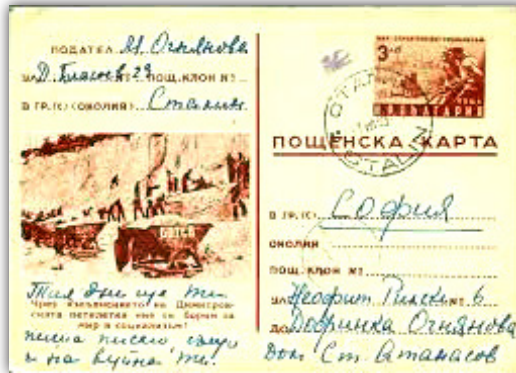 ПОДАТЕЛ М. Огнянова
УЛ. Д. Благоев 29 ПОЩ. КЛОН №
В ГР. (С) (ОКОЛИЯ) Сталин
Тия дни ще ти
Чрез изпълнението на Димитров-
ската петилетка ние се борим за
мир и социализъм!
пиша писмо също
и на вуйна ти.
3 ЛВ
БЪЛГАРИЯ
СТАЛИН
ПОЩЕНСКА КАРТА
В ГР. (С) София
ОКОЛИЯ
ПОЩ. КЛОН №
УЛ. Неофит Рилски № 6
ДО Дофинка Огнянова
Дом Ст. Атанасов